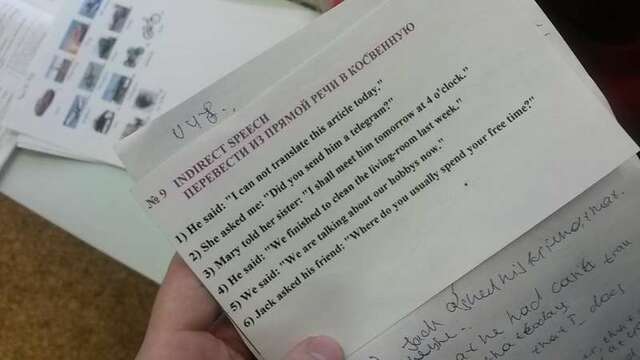 № 9 INDIRECT SPEECH
ПЕРЕВЕСТИ ИЗ ПРЯМОЙ РЕЧИ В КОСВЕННУЮ
1) He said: "I can not translate this article today."
2) She asked me: "Did you send him a telegram?"
3) Mary told her sister: "I shall meet him tomorrow at 4 o'clock."
4) He said: "We finished to clean the living-room last week."
5) We said: "We are talking about our hobbys now."
6) Jack asked his friend: "Where do you usually spend your free time?"
Jack asked his friend
he had